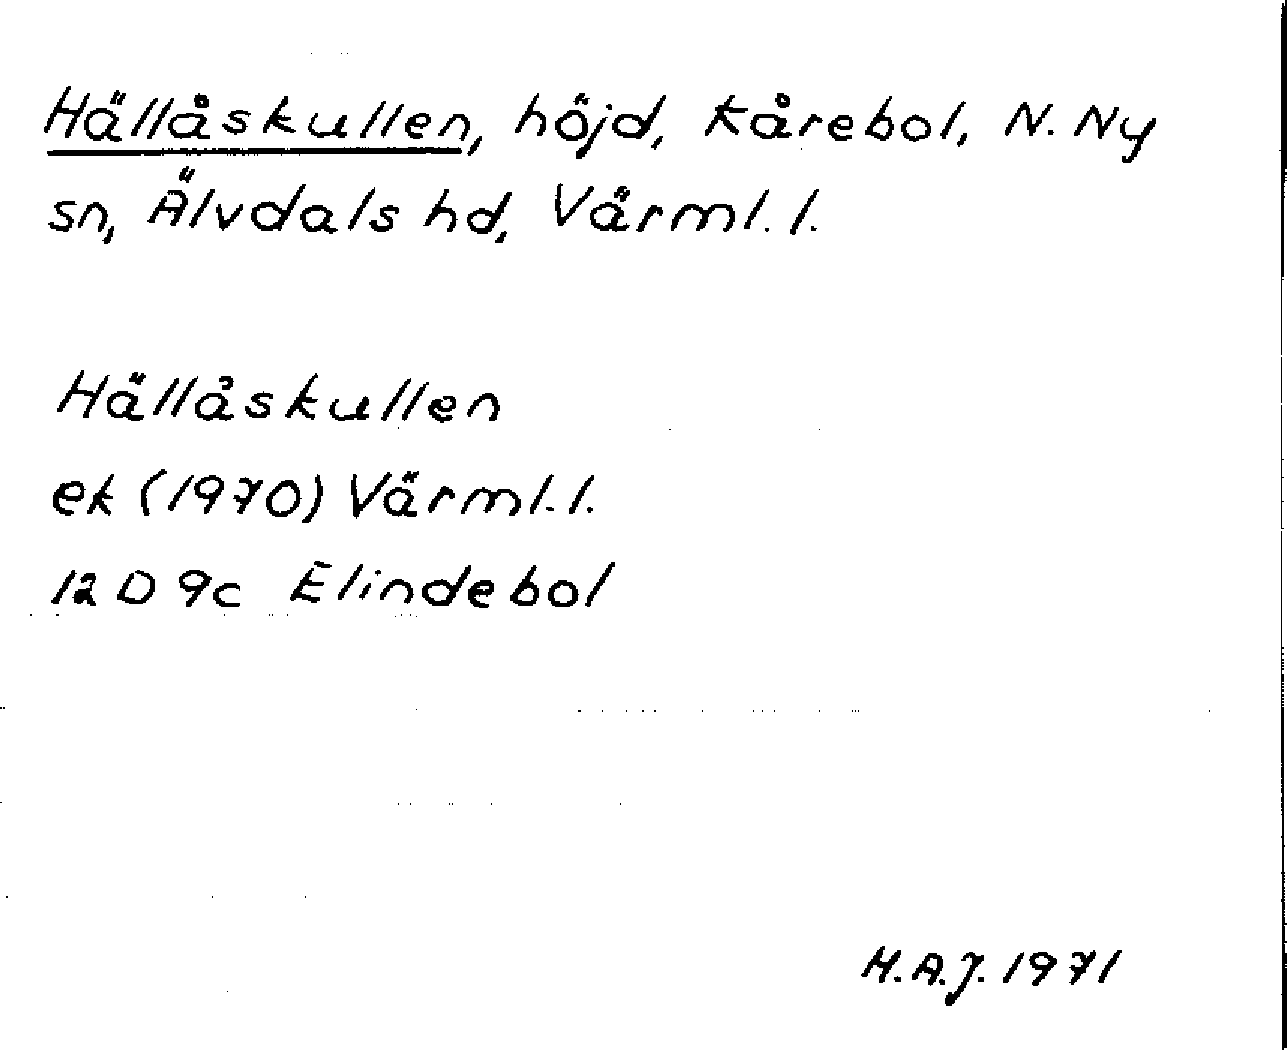 Hällåskullen, höjd, Kårebol, N. Ny
sn, Älvdals hd, Värml. l.
Hällåskullen
ek (1970) Värml. l.
12 D 9c Elindebol
H.A.J. 1971